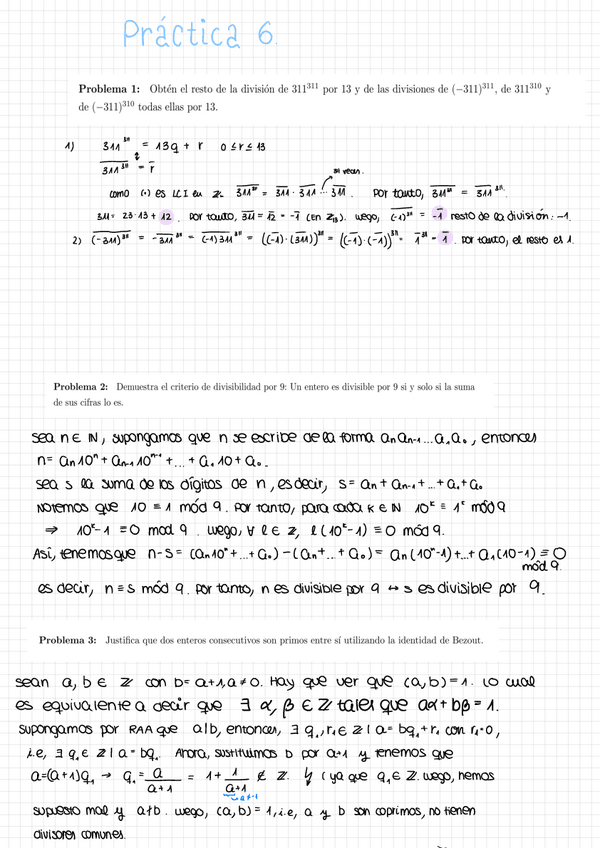 Práctica 6.
Problema 1: Obtén el resto de la división de 311³¹¹ por 13 y de las divisiones de (−311)³¹¹, de 311³¹⁰ y
de (−311)³¹⁰ todas ellas por 13.
1) 311³¹¹ = 13q + r 0 ≤ r ≤ 13
↕
311³¹¹ = r̄
311 veces.
como (·) es LCI en ℤ 311³¹¹ = 311 · 311 ... 311. Por tanto, 311³¹¹ = 311³¹¹.
311 = 23·13 + 12. Por tanto, 311 = 12 = -1 (en ℤ₁₃). Luego, (-1)³¹¹ = -1 resto de la división: -1.
2) (-311)³¹¹ = -311³¹¹ = (-1)311³¹¹ = ((-1)·(311))³¹¹ = ((-1)·(-1))³¹¹ = 1³¹¹ = 1. Por tanto, el resto es 1.
Problema 2: Demuestra el criterio de divisibilidad por 9: Un entero es divisible por 9 si y solo si la suma
de sus cifras lo es.
Sea n ∈ ℕ, supongamos que n se escribe de la forma aₙaₙ₋₁...a₁a₀, entonces
n = aₙ10ⁿ + aₙ₋₁10ⁿ⁻¹ + ... + a₁10 + a₀.
Sea s la suma de los dígitos de n, es decir, s = aₙ + aₙ₋₁ + ... + a₁ + a₀
Notemos que 10 ≡ 1 mód 9. Por tanto, para cada k ∈ ℕ 10ᵏ ≡ 1ᵏ mód 9
⇒ 10ᵏ - 1 ≡ 0 mod 9. Luego, ∀ l ∈ ℤ, l(10ᵏ-1) ≡ 0 mód 9.
Así, tenemos que n-s = (aₙ10ⁿ + ... + a₀) - (aₙ + ... + a₀) = aₙ(10ⁿ-1) + ... + a₁(10-1) ≡ 0
mód 9.
es decir, n ≡ s mód 9. Por tanto, n es divisible por 9 ↔ s es divisible por 9.
Problema 3: Justifica que dos enteros consecutivos son primos entre sí utilizando la identidad de Bezout.
Sean a, b ∈ ℤ con b = a+1, a ≠ 0. Hay que ver que (a,b) = 1. Lo cual
es equivalente a decir que ∃ α, β ∈ ℤ tales que aα + bβ = 1.
Supongamos por RAA que a|b, entonces, ∃ q₁, r₁ ∈ ℤ | a = bq₁ + r₁ con r₁ = 0,
i.e, ∃ q₁ ∈ ℤ | a = bq₁. Ahora, sustituimos b por a+1 y tenemos que
a = (a+1)q₁ → q₁ = a/(a+1) = 1 + 1/(a+1) ∉ ℤ. ↯ (ya que q₁ ∈ ℤ. Luego, hemos
supuesto mal y a∤b. Luego, (a,b) = 1, i.e, a y b son coprimos, no tienen
divisores comunes.